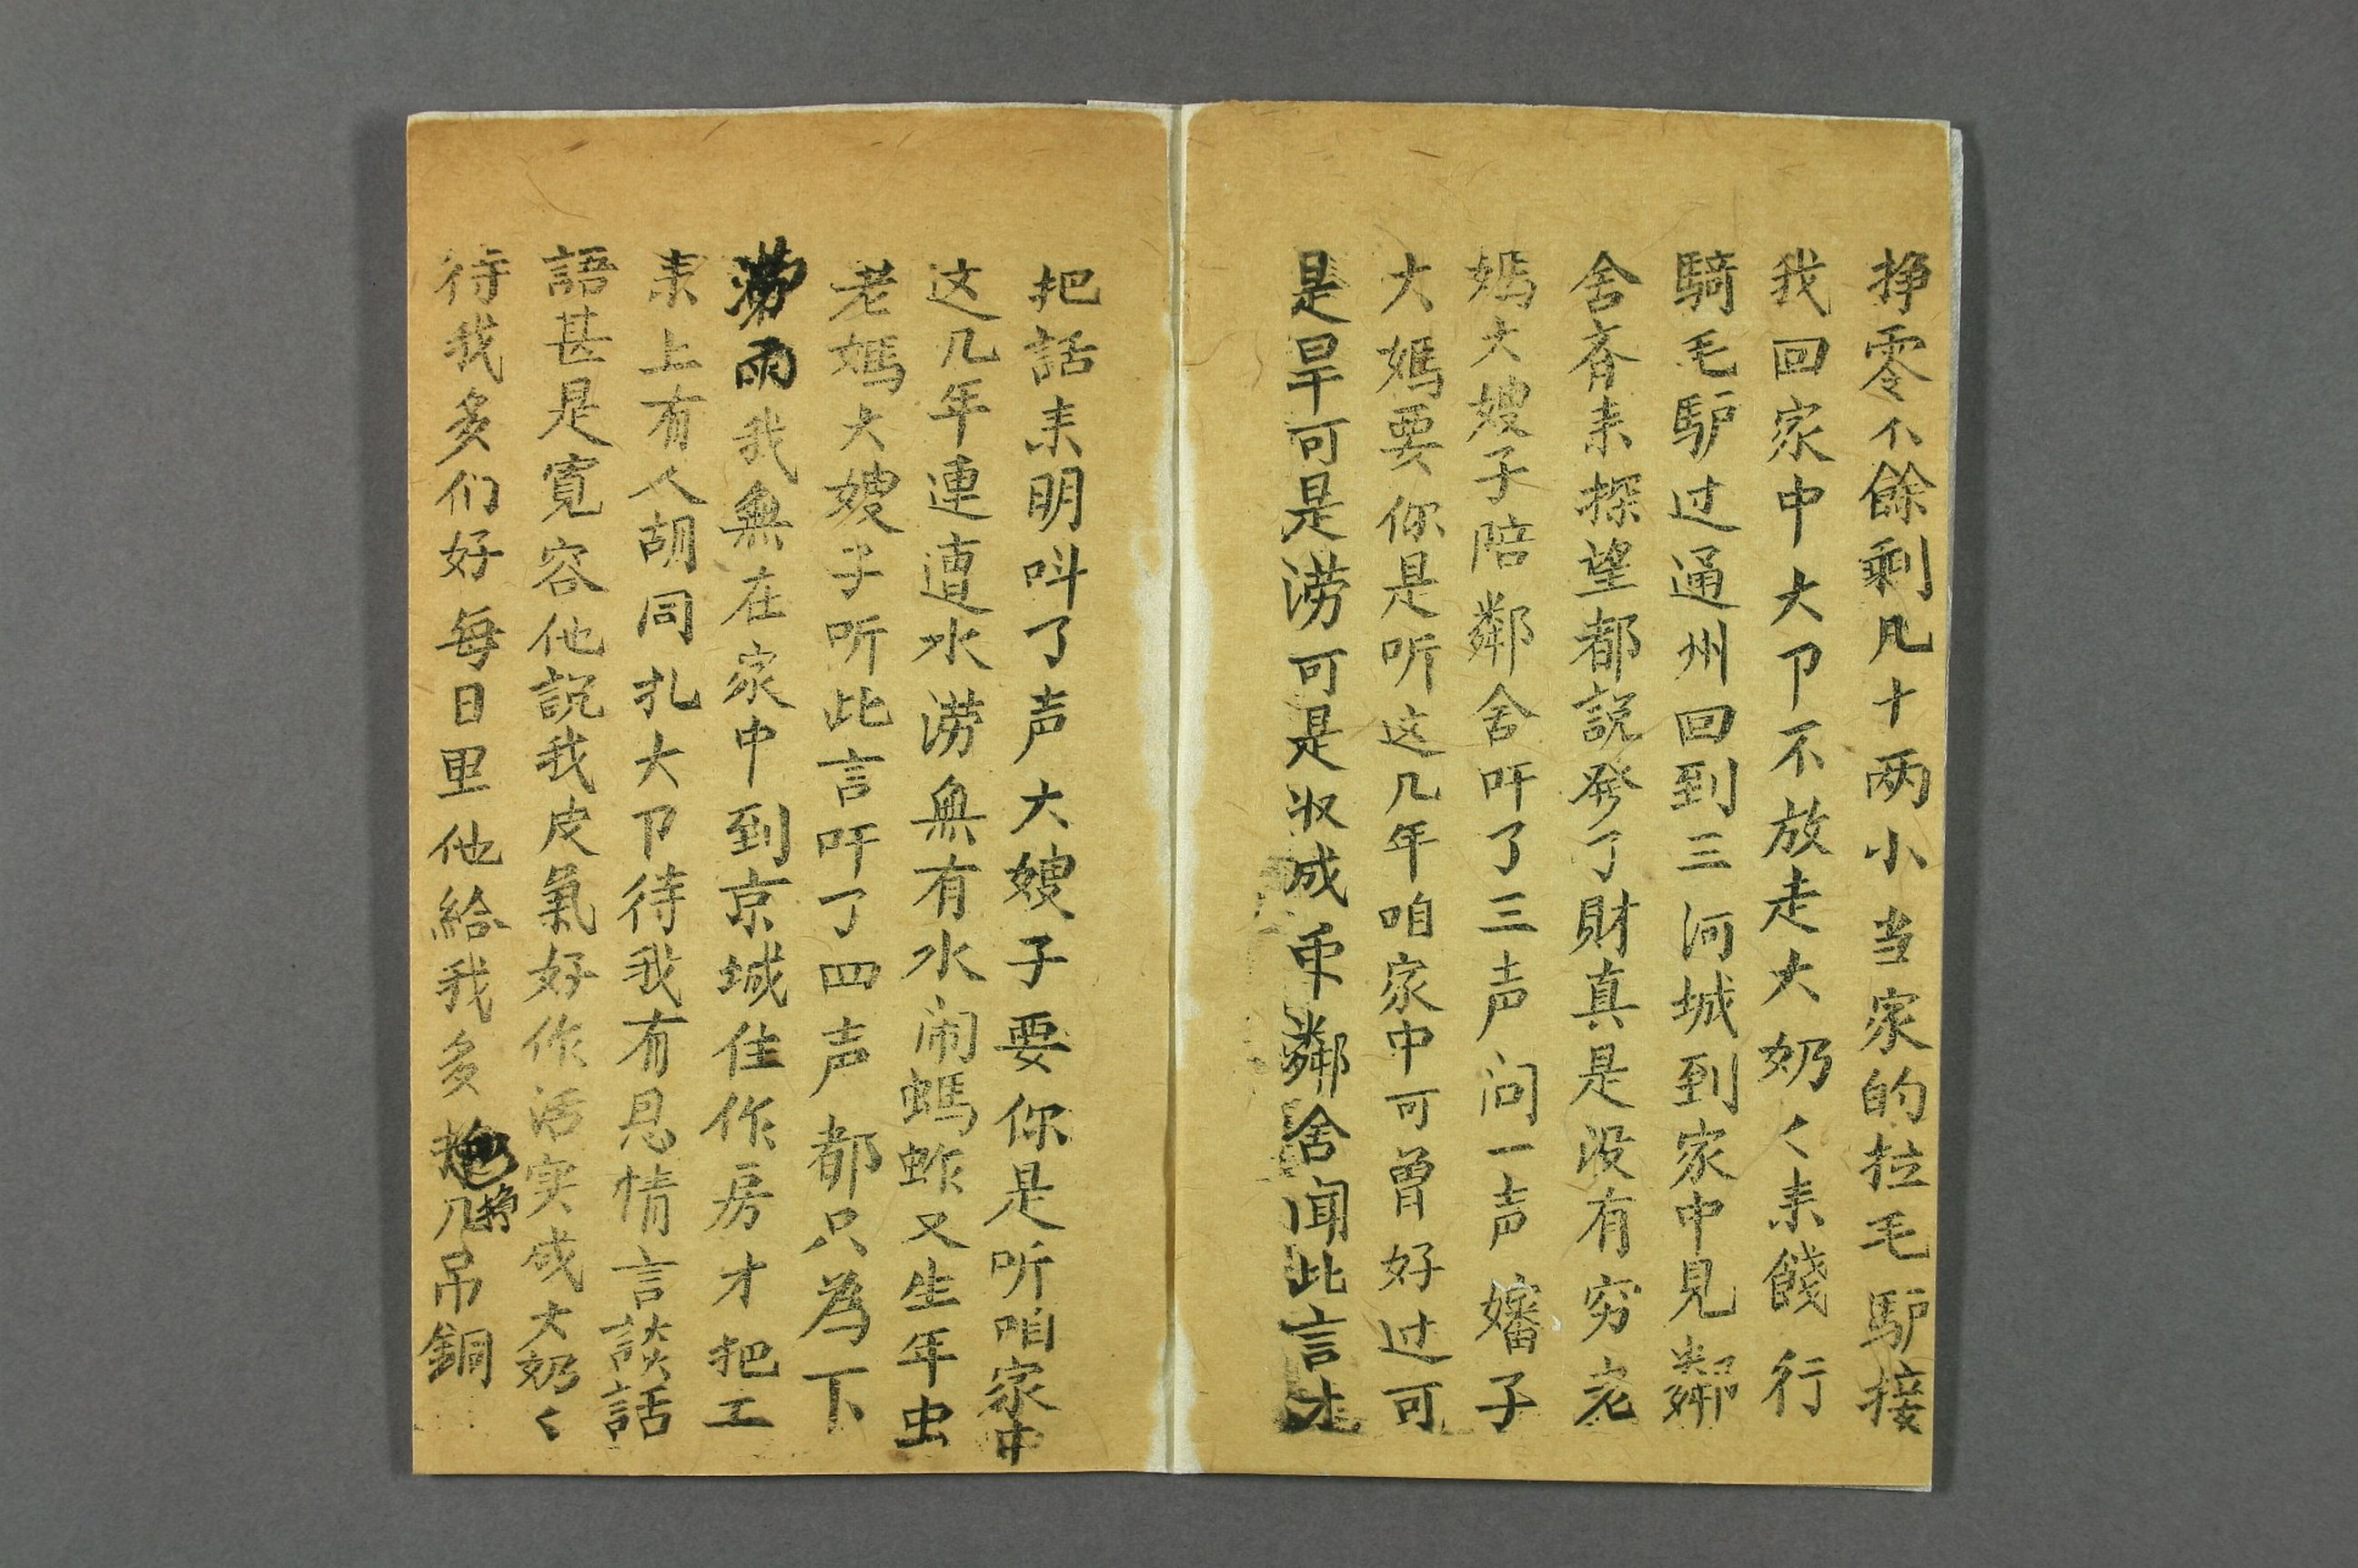 挣零不餘剩几十两小当家的拉毛馿接
我回家中大卩不放走大奶々耒餞行
騎毛馿过通州回到三河城到家中見鄰
舍斉耒探望都説發了財真是没有穷老
媽大嫂子陪鄰舍吁了三声问一声嬸子
大媽要你是听这几年咱家中可曾好过可
是旱可是涝可是收成乎鄰舍闻此言才
把話耒明呌了声大嫂子要你是听咱家中
这几年連遭水涝無有水闹螞蚱又生年虫
老媽大嫂子听此言吁了四声都只為下
涝雨我無在家中到京城住作房才把工
耒上有人胡同扎大卩待我有恩情言談話
語甚是寛容他説我皮氣好作活实成大奶々
待我多们好每日里他給我多挣几吊銅